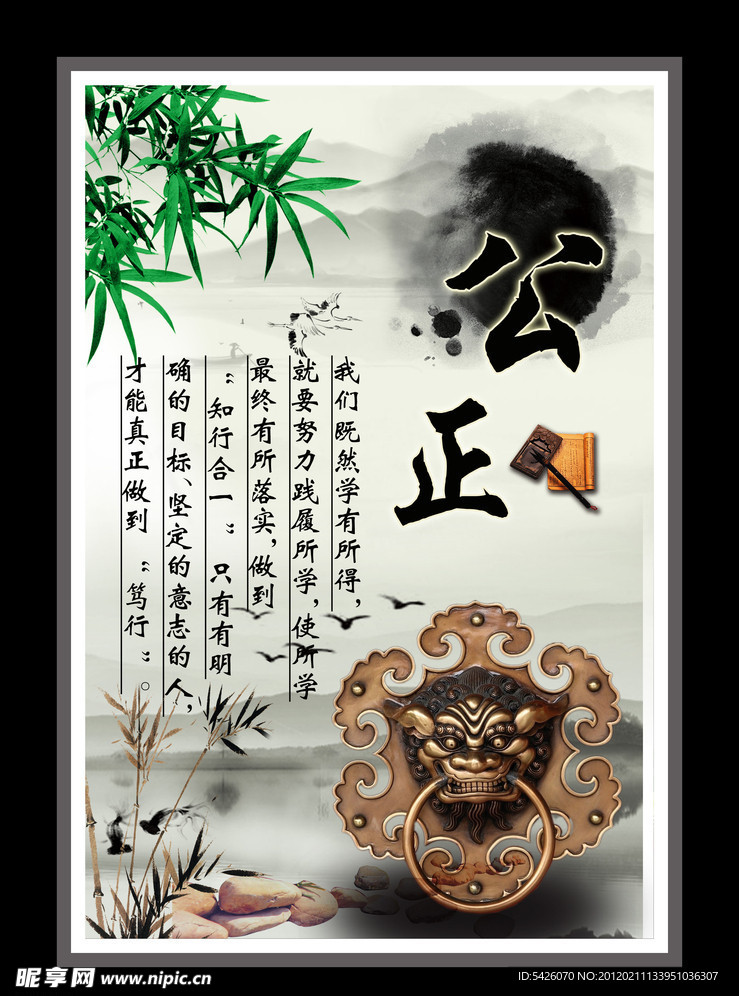 公
正
我们既然学有所得，
就要努力践履所学，使所学
最终有所落实，做到
“知行合一”只有有明
确的目标、坚定的意志的人，
才能真正做到“笃行”。
昵享网 www.nipic.cn
ID:5426070 NO:20120211133951036307